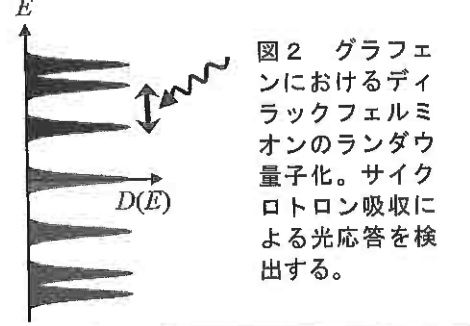 E
D(E)
図２　グラフェ
ンにおけるディ
ラックフェルミ
オンのランダウ
量子化。サイク
ロトロン吸収に
よる光応答を検
出する。